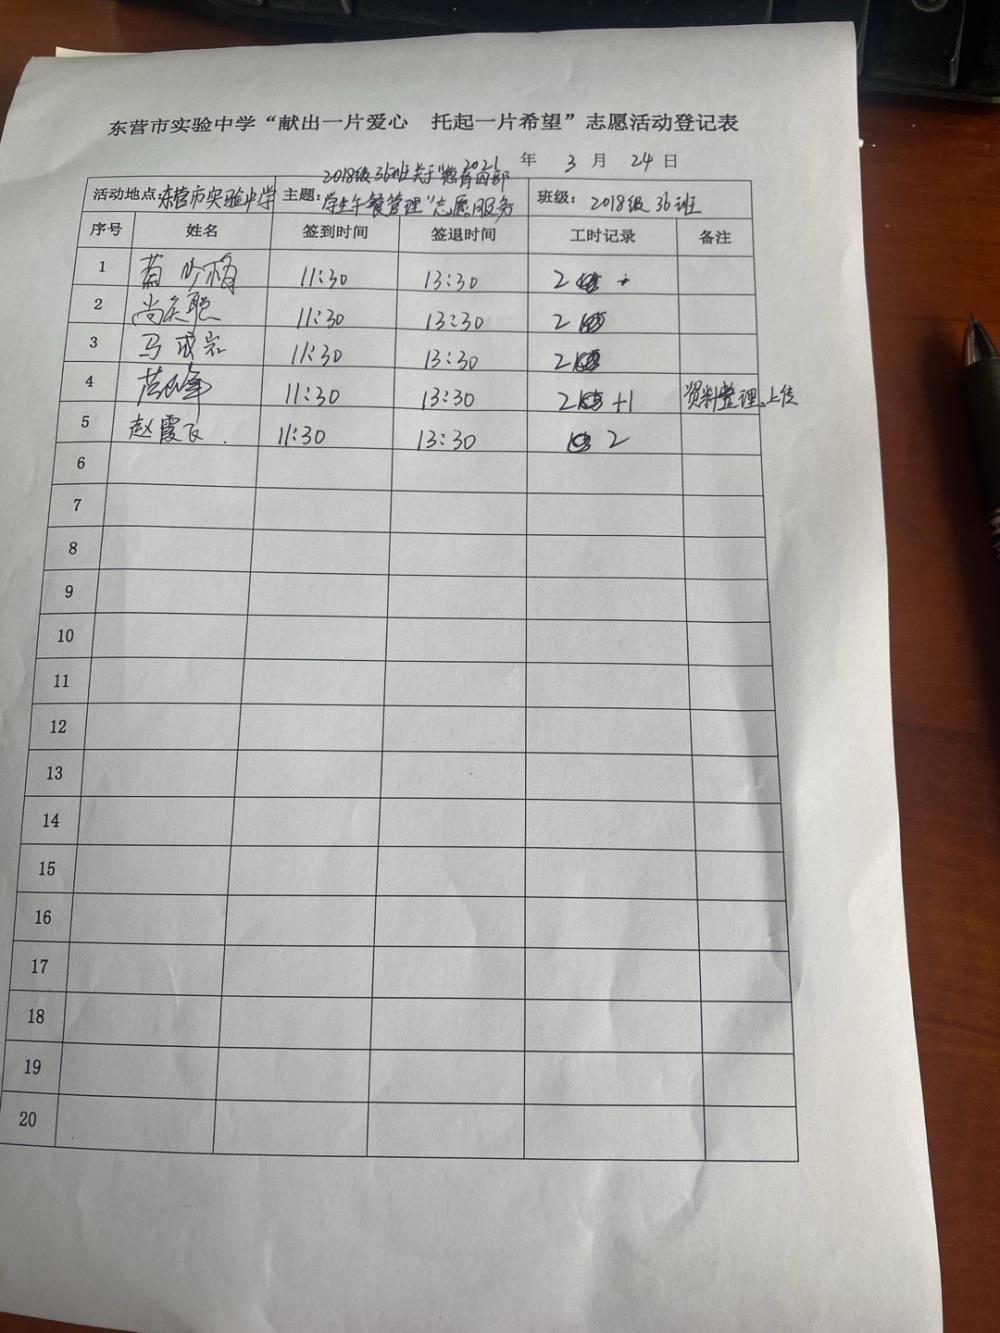 东营市实验中学“献出一片爱心 托起一片希望”志愿活动登记表
2021 年 3 月 24 日
活动地点:东营市实验中学 主题:2018级36班关于“德育四部 班级: 2018级36班
学生午餐管理”志愿服务
序号 姓名 签到时间 签退时间 工时记录 备注
1 11:30 13:30 2
2 尚庆聪 11:30 13:30 2
3 马成岩 11:30 13:30 2
4 11:30 13:30 2 +1 资料整理、上传
5 赵霞飞 11:30 13:30 2
6
7
8
9
10
11
12
13
14
15
16
17
18
19
20